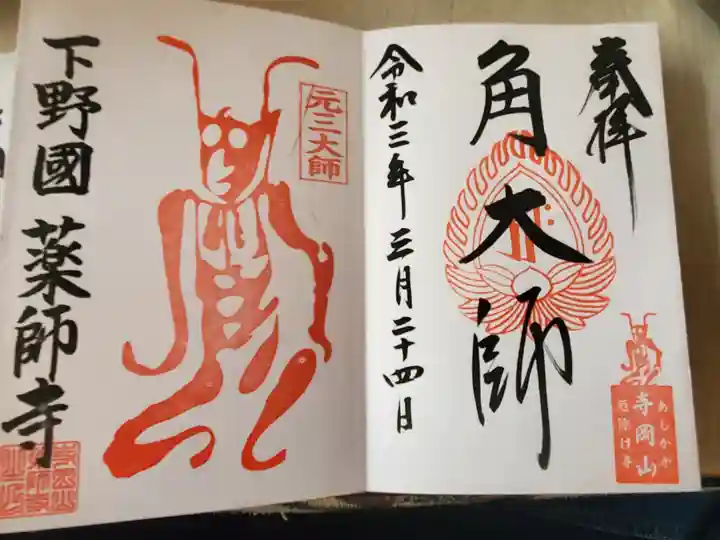 奉拝
角大師
令和三年三月二十四日
あしかゞ
寺岡山
厄除け寺
元三大師
下野國 薬師寺